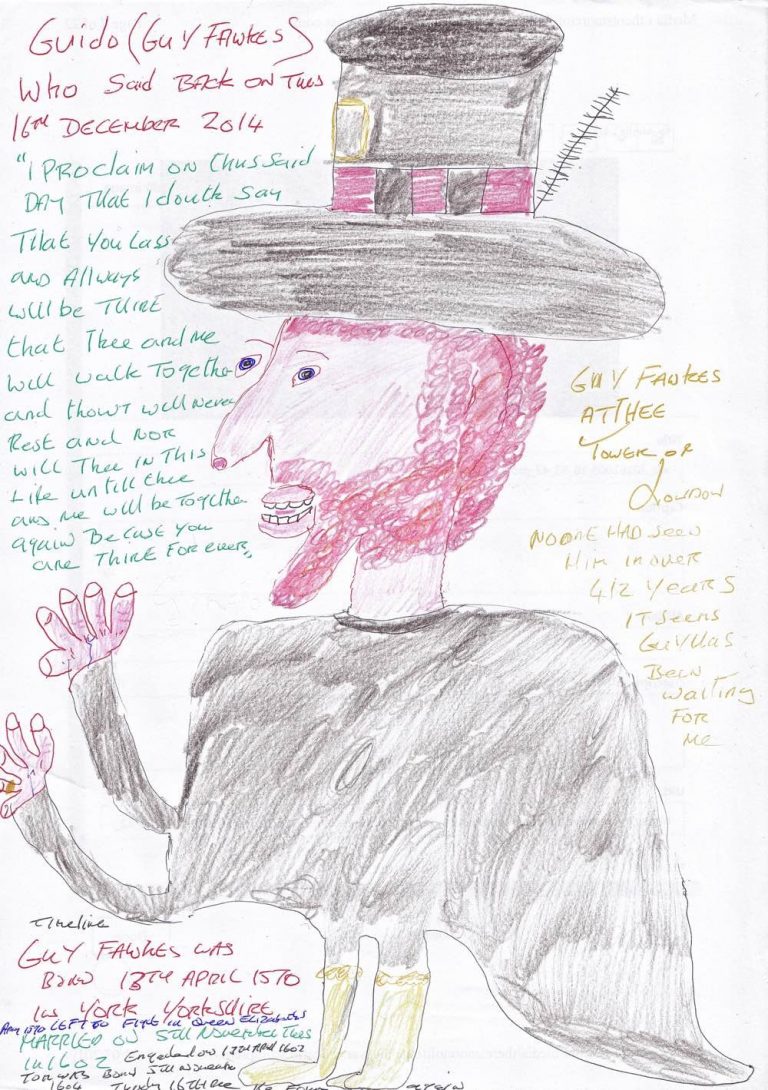 GUIDO (GUY FAWKES)
WHO SAID BACK ON THIS
16TH DECEMBER 2014
"I PROCLAIM ON thus said
DAY THAT I douth Say
THAT YOU LASS
AND Allways
will be THINE
that Thee and me
will walk Together
and thowt will never
Rest and NOR
will Thee IN THIS
Life untill thee
and me will be Together
again Because you
are THINE FOR ever,
GUY FAWKES
AT THEE
TOWER OF
LONDON
NO ONE HAD SEEN
HIM IN OVER
412 YEARS
IT SEEMS
GUY HAS
BEEN
waiting
FOR
ME
Timeline
GUY FAWKES WAS
BORN 13TH APRIL 1570
IN YORK YORKSHIRE
LEFT TO Fight in Queen Elizabeths
MARRIED ON 5TH November
IN 1602 Engaded on 13TH April 1602
TOM WAS BORN 5TH November
1604 16TH